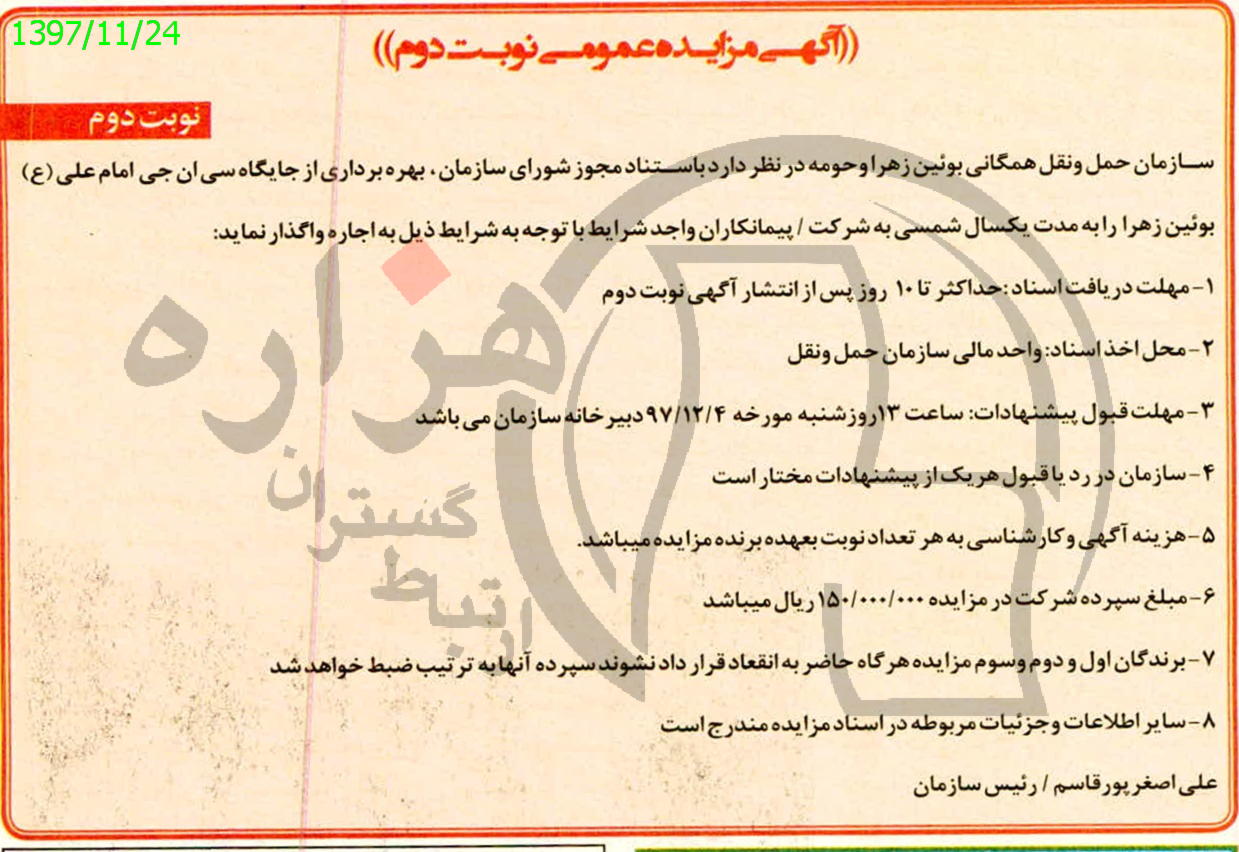 1397/11/24
((آگهی مزایده عمومی نوبت دوم))
نوبت دوم
سازمان حمل ونقل همگانی بوئین زهرا وحومه در نظر دارد باستناد مجوز شورای سازمان، بهره برداری از جایگاه سی ان جی امام علی (ع)
بوئین زهرا را به مدت یکسال شمسی به شرکت / پیمانکاران واجد شرایط با توجه به شرایط ذیل به اجاره واگذار نماید:
۱- مهلت دریافت اسناد: حداکثر تا ۱۰ روز پس از انتشار آگهی نوبت دوم
۲- محل اخذ اسناد: واحد مالی سازمان حمل ونقل
۳- مهلت قبول پیشنهادات: ساعت ۱۳روزشنبه مورخه ۹۷/۱۲/۴ دبیرخانه سازمان می باشد
۴- سازمان در رد یا قبول هر یک از پیشنهادات مختار است
۵- هزینه آگهی و کارشناسی به هر تعداد نوبت بعهده برنده مزایده میباشد.
۶- مبلغ سپرده شرکت در مزایده ۱۵۰/۰۰۰/۰۰۰ ریال میباشد
۷- برندگان اول و دوم وسوم مزایده هرگاه حاضر به انقعاد قرار داد نشوند سپرده آنها به ترتیب ضبط خواهد شد
۸- سایر اطلاعات وجزئیات مربوطه در اسناد مزایده مندرج است
علی اصغر پورقاسم / رئیس سازمان
هزاره
ارتباط
گستران